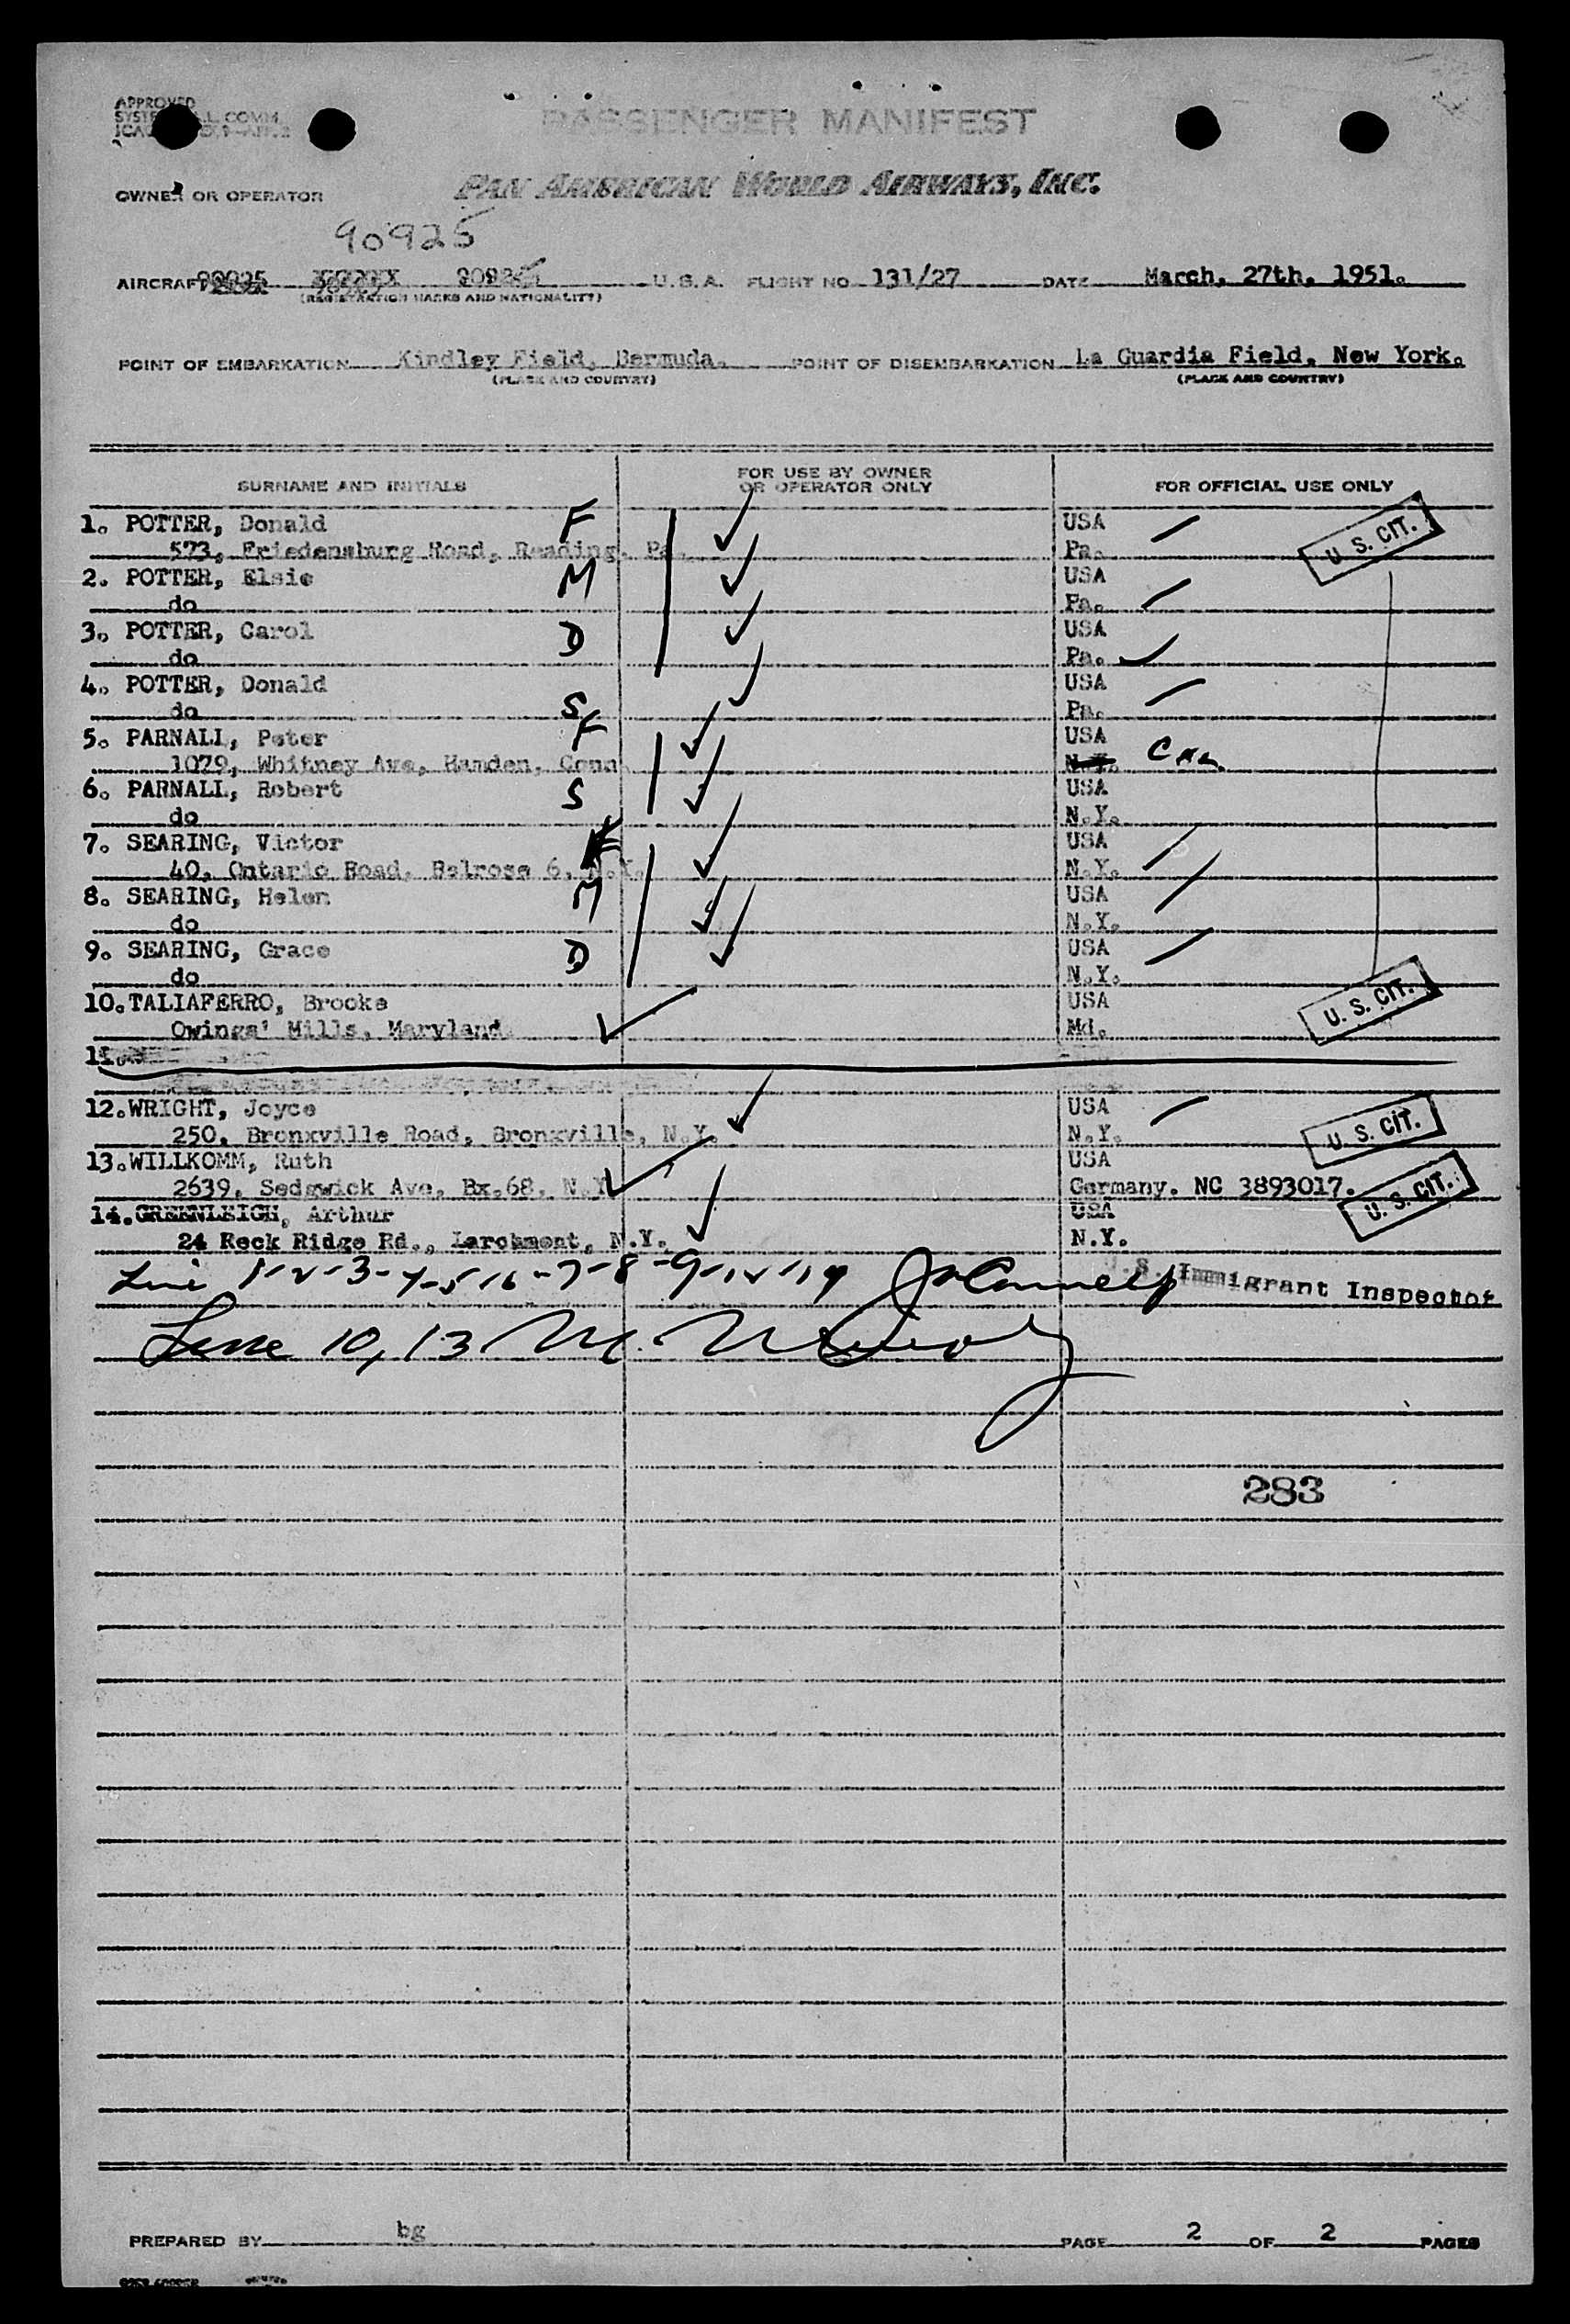 APPROVED
PASSENGER MANIFEST
OWNER OR OPERATOR PAN AMERICAN WORLD AIRWAYS, INC.
90925
AIRCRAFT 90925 U.S.A. FLIGHT NO. 131/27 DATE March, 27th, 1951.
(REGISTRATION MARKS AND NATIONALITY)
POINT OF EMBARKATION Kindley Field, Bermuda. POINT OF DISEMBARKATION La Guardia Field, New York.
(PLACE AND COUNTRY) (PLACE AND COUNTRY)
SURNAME AND INITIALS FOR USE BY OWNER OR OPERATOR ONLY FOR OFFICIAL USE ONLY
1. POTTER, Donald F USA U. S. CIT.
573, Friedensburg Road, Reading, Pa. Pa.
2. POTTER, Elsie M USA
do Pa.
3. POTTER, Carol D USA
do Pa.
4. POTTER, Donald USA
do S Pa.
5. PARNALL, Peter F USA
1079, Whitney Ave, Hamden, Conn N.Y. Cal
6. PARNALL, Robert S USA
do N.Y.
7. SEARING, Victor F USA
40, Ontario Road, Belrose 6, N.Y. N.Y.
8. SEARING, Helen M USA
do N.Y.
9. SEARING, Grace D USA
do N.Y.
10. TALIAFERRO, Brooke USA U. S. CIT.
Owings' Mills, Maryland Md.
11.
12. WRIGHT, Joyce USA U. S. CIT.
250, Bronxville Road, Bronxville, N.Y. N.Y.
13. WILLKOMM, Ruth USA
2639, Sedgwick Ave, Bx.68, N.Y. Germany. NC 3893017. U. S. CIT.
14. GREENLEIGH, Arthur USA
24 Rock Ridge Rd., Larchmont, N.Y. N.Y.
Line 1-2-3-4-5-6-7-8-9-12-14 U.S. Immigrant Inspector
Line 10, 13
283
PREPARED BY bg PAGE 2 OF 2 PAGES